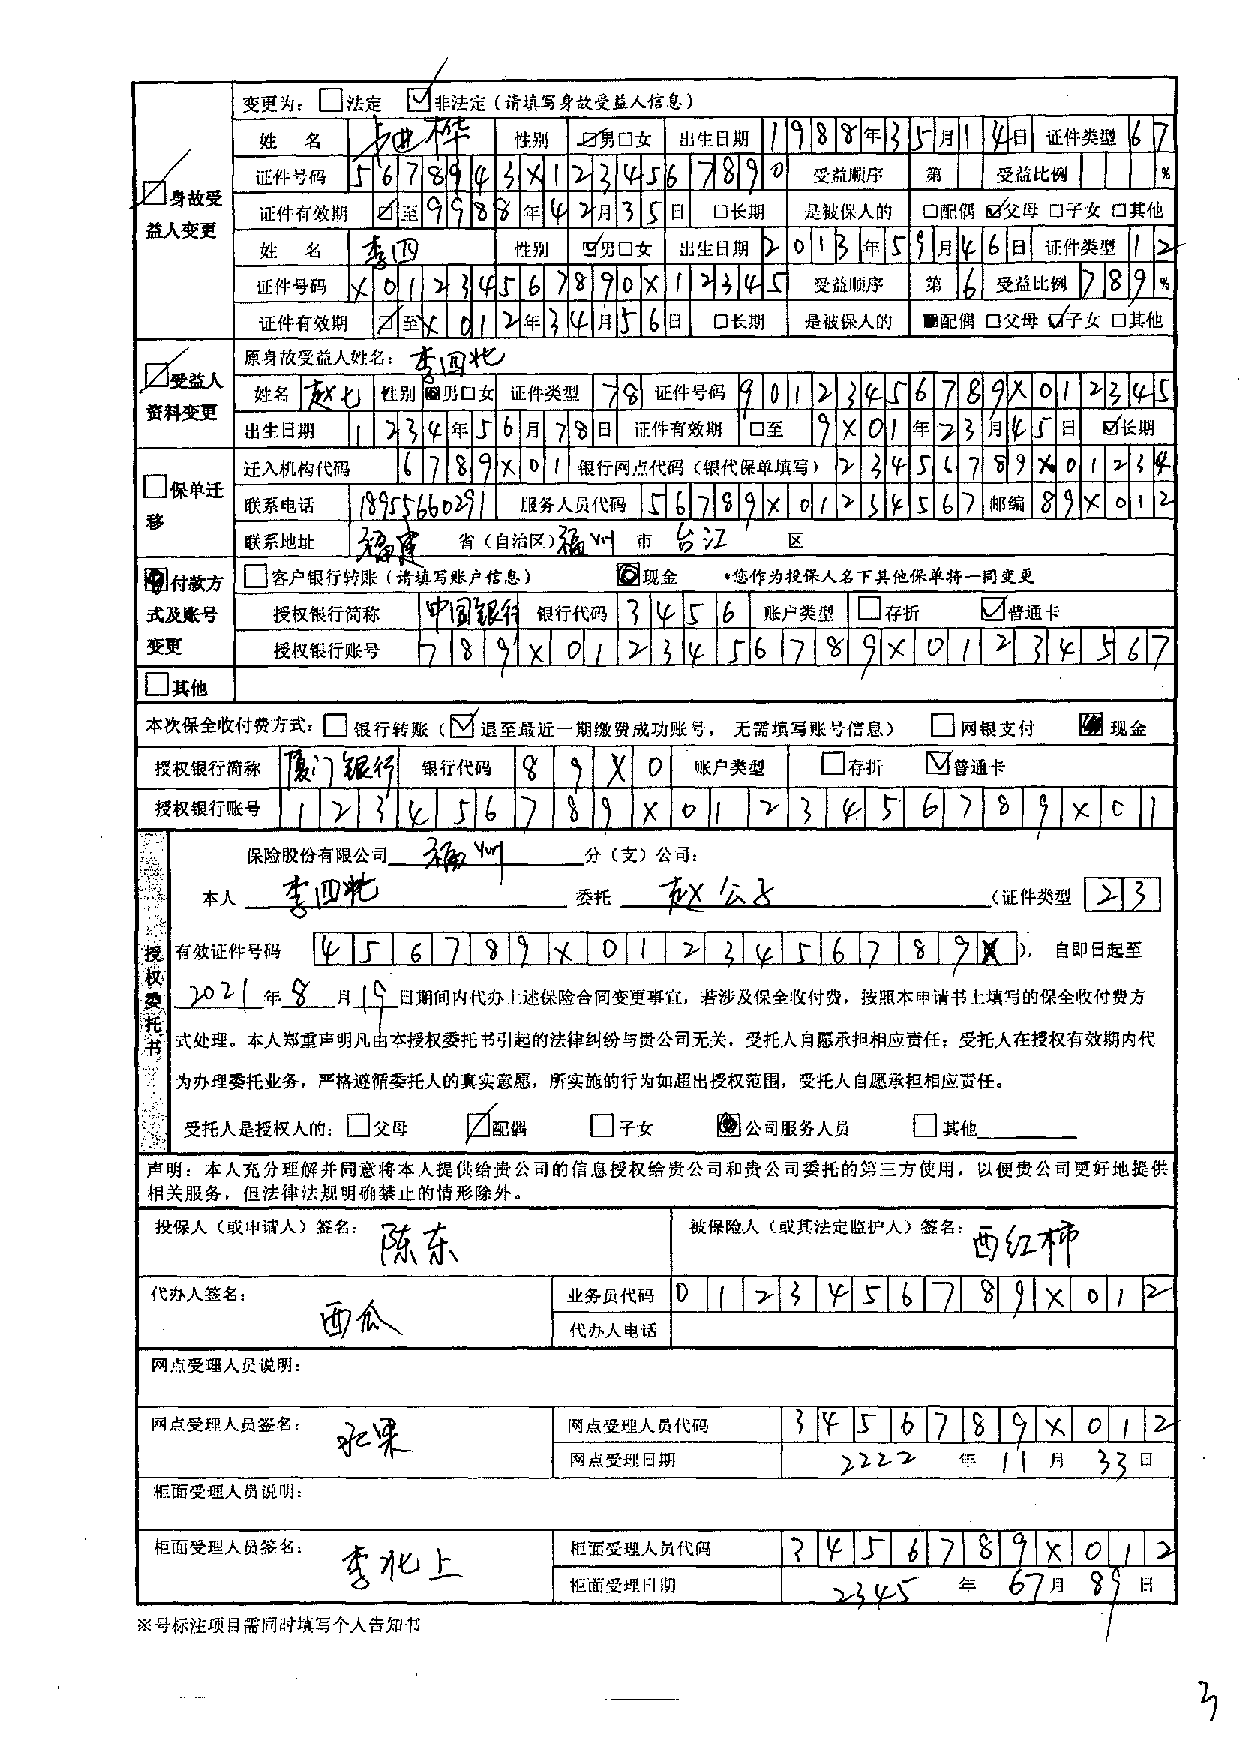 变更为：□法定 ☑非法定（请填写身故受益人信息）
姓 名 桦 性别 ☑男□女 出生日期 1988年35月14日 证件类型 67
☑身故受益人变更
证件号码 5678943X1234567890 受益顺序 第 受益比例 %
证件有效期 ☑至9988年42月35日 □长期 是被保人的 □配偶 ☑父母 □子女 □其他
姓 名 李四 性别 ☑男□女 出生日期 2013年59月46日 证件类型 12
证件号码 X01234567890X12345 受益顺序 第6 受益比例 789%
证件有效期 ☑至X012年34月56日 □长期 是被保人的 ■配偶 □父母 ☑子女 □其他
☑受益人资料变更
原身故受益人姓名：李四北
姓名 赵七 性别 ■男□女 证件类型 78 证件号码 90123456789X012345
出生日期 1234年56月78日 证件有效期 □至 9X01年23月45日 ☑长期
□保单迁移
迁入机构代码 6789X01 银行网点代码（银代保单填写）23456789X01234
联系电话 18955660291 服务人员代码 56789X01234567 邮编 89X012
联系地址 福建 省（自治区）福州 市 台江 区
■付款方式及账号变更
□客户银行转账（请填写账户信息） ■现金 *您作为投保人名下其他保单将一同变更
授权银行简称 中国银行 银行代码 3456 账户类型 □存折 ☑普通卡
授权银行账号 789X0123456789X01234567
□其他
本次保全收付费方式：□银行转账（☑退至最近一期缴费成功账号，无需填写账号信息） □网银支付 ■现金
授权银行简称 厦门银行 银行代码 89X0 账户类型 □存折 ☑普通卡
授权银行账号 123456789X0123456789X01
授权委托书
保险股份有限公司 福州 分（支）公司：
本人 李四北 委托 赵公子 （证件类型 23
有效证件号码 456789X0123456789X ），自即日起至
2021年8月19日期间内代办上述保险合同变更事宜，若涉及保全收付费，按照本申请书上填写的保全收付费方
式处理。本人郑重声明凡由本授权委托书引起的法律纠纷与贵公司无关，受托人自愿承担相应责任；受托人在授权有效期内代
为办理委托业务，严格遵循委托人的真实意愿，所实施的行为如超出授权范围，受托人自愿承担相应责任。
受托人是授权人的：□父母 ☑配偶 □子女 ■公司服务人员 □其他
声明：本人充分理解并同意将本人提供给贵公司的信息授权给贵公司和贵公司委托的第三方使用，以便贵公司更好地提供
相关服务，但法律法规明确禁止的情形除外。
投保人（或申请人）签名：陈东 被保险人（或其法定监护人）签名：西红柿
代办人签名：西瓜 业务员代码 0123456789X012
代办人电话
网点受理人员说明：
网点受理人员签名：水果 网点受理人员代码 3456789X012
网点受理日期 2222年11月33日
柜面受理人员说明：
柜面受理人员签名：李北上 柜面受理人员代码 3456789X012
柜面受理日期 2345年67月89日
※号标注项目需同时填写个人告知书
3